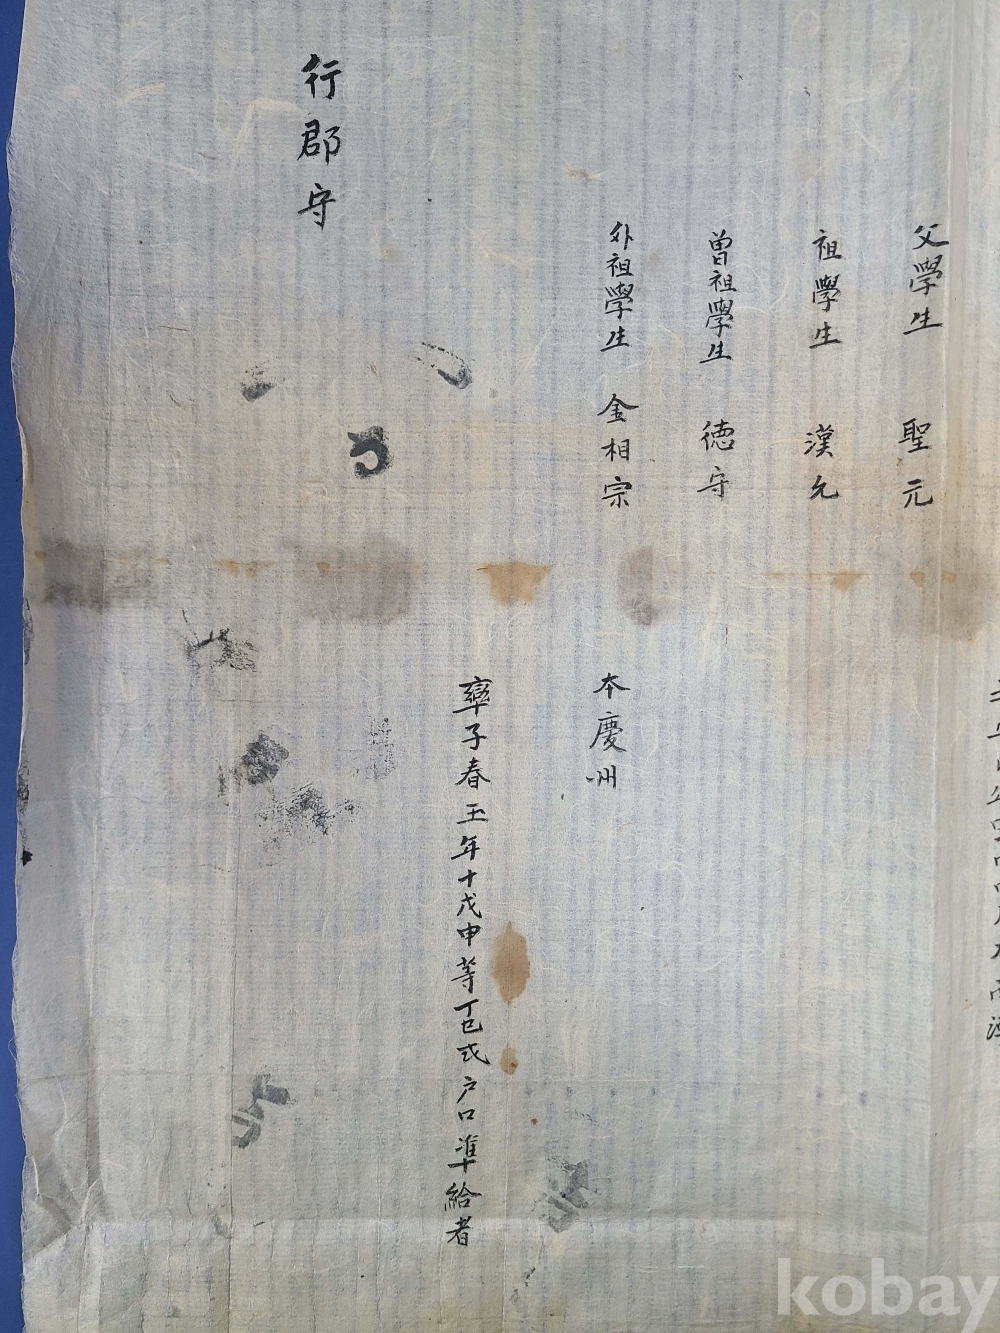 父學生 聖元
祖學生 漢允
曾祖學生 德守
外祖學生 金相宗 本慶州
率子春玉年十戊申等丁巳式户口準給者
行郡守
kobay